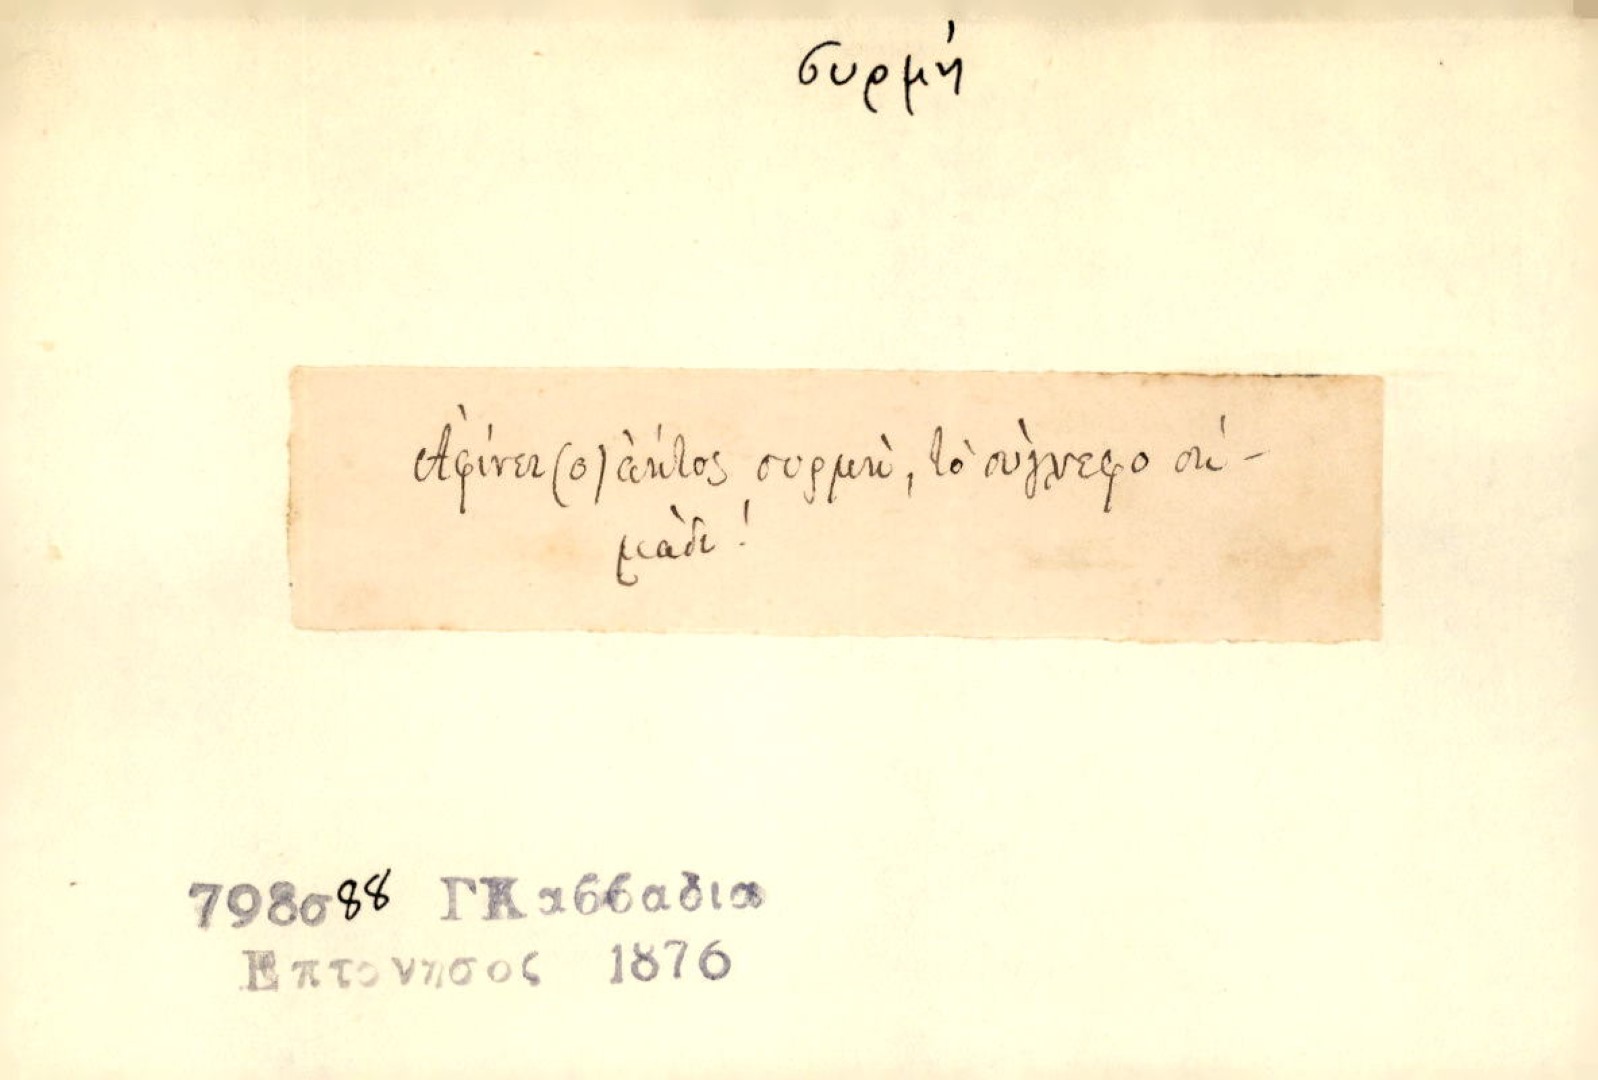 συρμή
Ἀφίνει (ὁ) ἀητὸς συρμὴ, τὸ σύγνεφο ση-
μάδι!
798σ88 ΓΚαββαδια
Επτονησος 1876